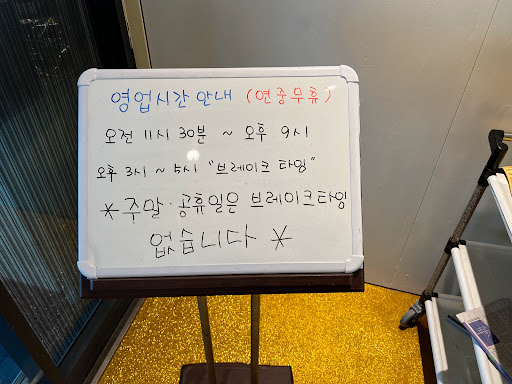 영업시간 안내 (연중무휴)
오전 11시 30분 ~ 오후 9시
오후 3시 ~ 5시 "브레이크 타임"
* 주말·공휴일은 브레이크타임
없습니다 *